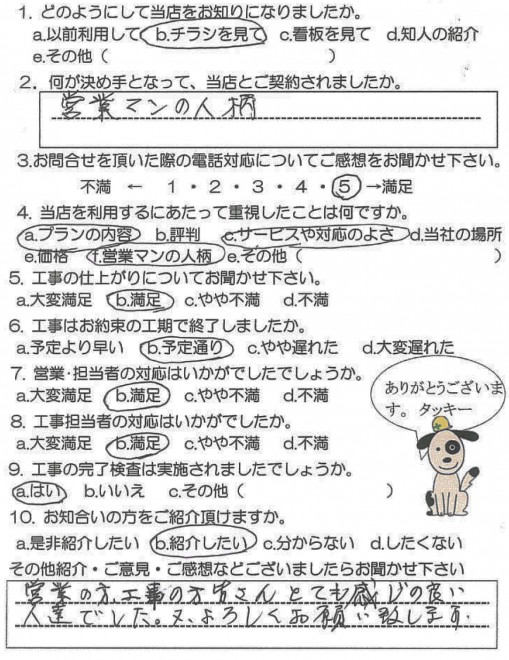 1. どのようにして当店をお知りになりましたか。
a.以前利用して b.チラシを見て c.看板を見て d.知人の紹介
e.その他（ ）
2. 何が決め手となって、当店とご契約されましたか。
営業マンの人柄
3.お問合せを頂いた際の電話対応についてご感想をお聞かせ下さい。
不満 ← 1・2・3・4・5→満足
4. 当店を利用するにあたって重視したことは何ですか。
a.プランの内容 b.評判 c.サービスや対応のよさ d.当社の場所
e.価格 f.営業マンの人柄 e.その他（ ）
5. 工事の仕上がりについてお聞かせ下さい。
a.大変満足 b.満足 c.やや不満 d.不満
6. 工事はお約束の工期で終了しましたか。
a.予定より早い b.予定通り c.やや遅れた d.大変遅れた
7. 営業・担当者の対応はいかがでしたでしょうか。
a.大変満足 b.満足 c.やや不満 d.不満
8. 工事担当者の対応はいかがでしたか。
a.大変満足 b.満足 c.やや不満 d.不満
ありがとうございま
す。 タッキー
9. 工事の完了検査は実施されましたでしょうか。
a.はい b.いいえ c.その他（ ）
10. お知合いの方をご紹介頂けますか。
a.是非紹介したい b.紹介したい c.分からない d.したくない
その他紹介・ご意見・ご感想などございましたらお聞かせ下さい
営業の方、工事の方皆さんとても感じの良い
人達でした。又、よろしくお願い致します.